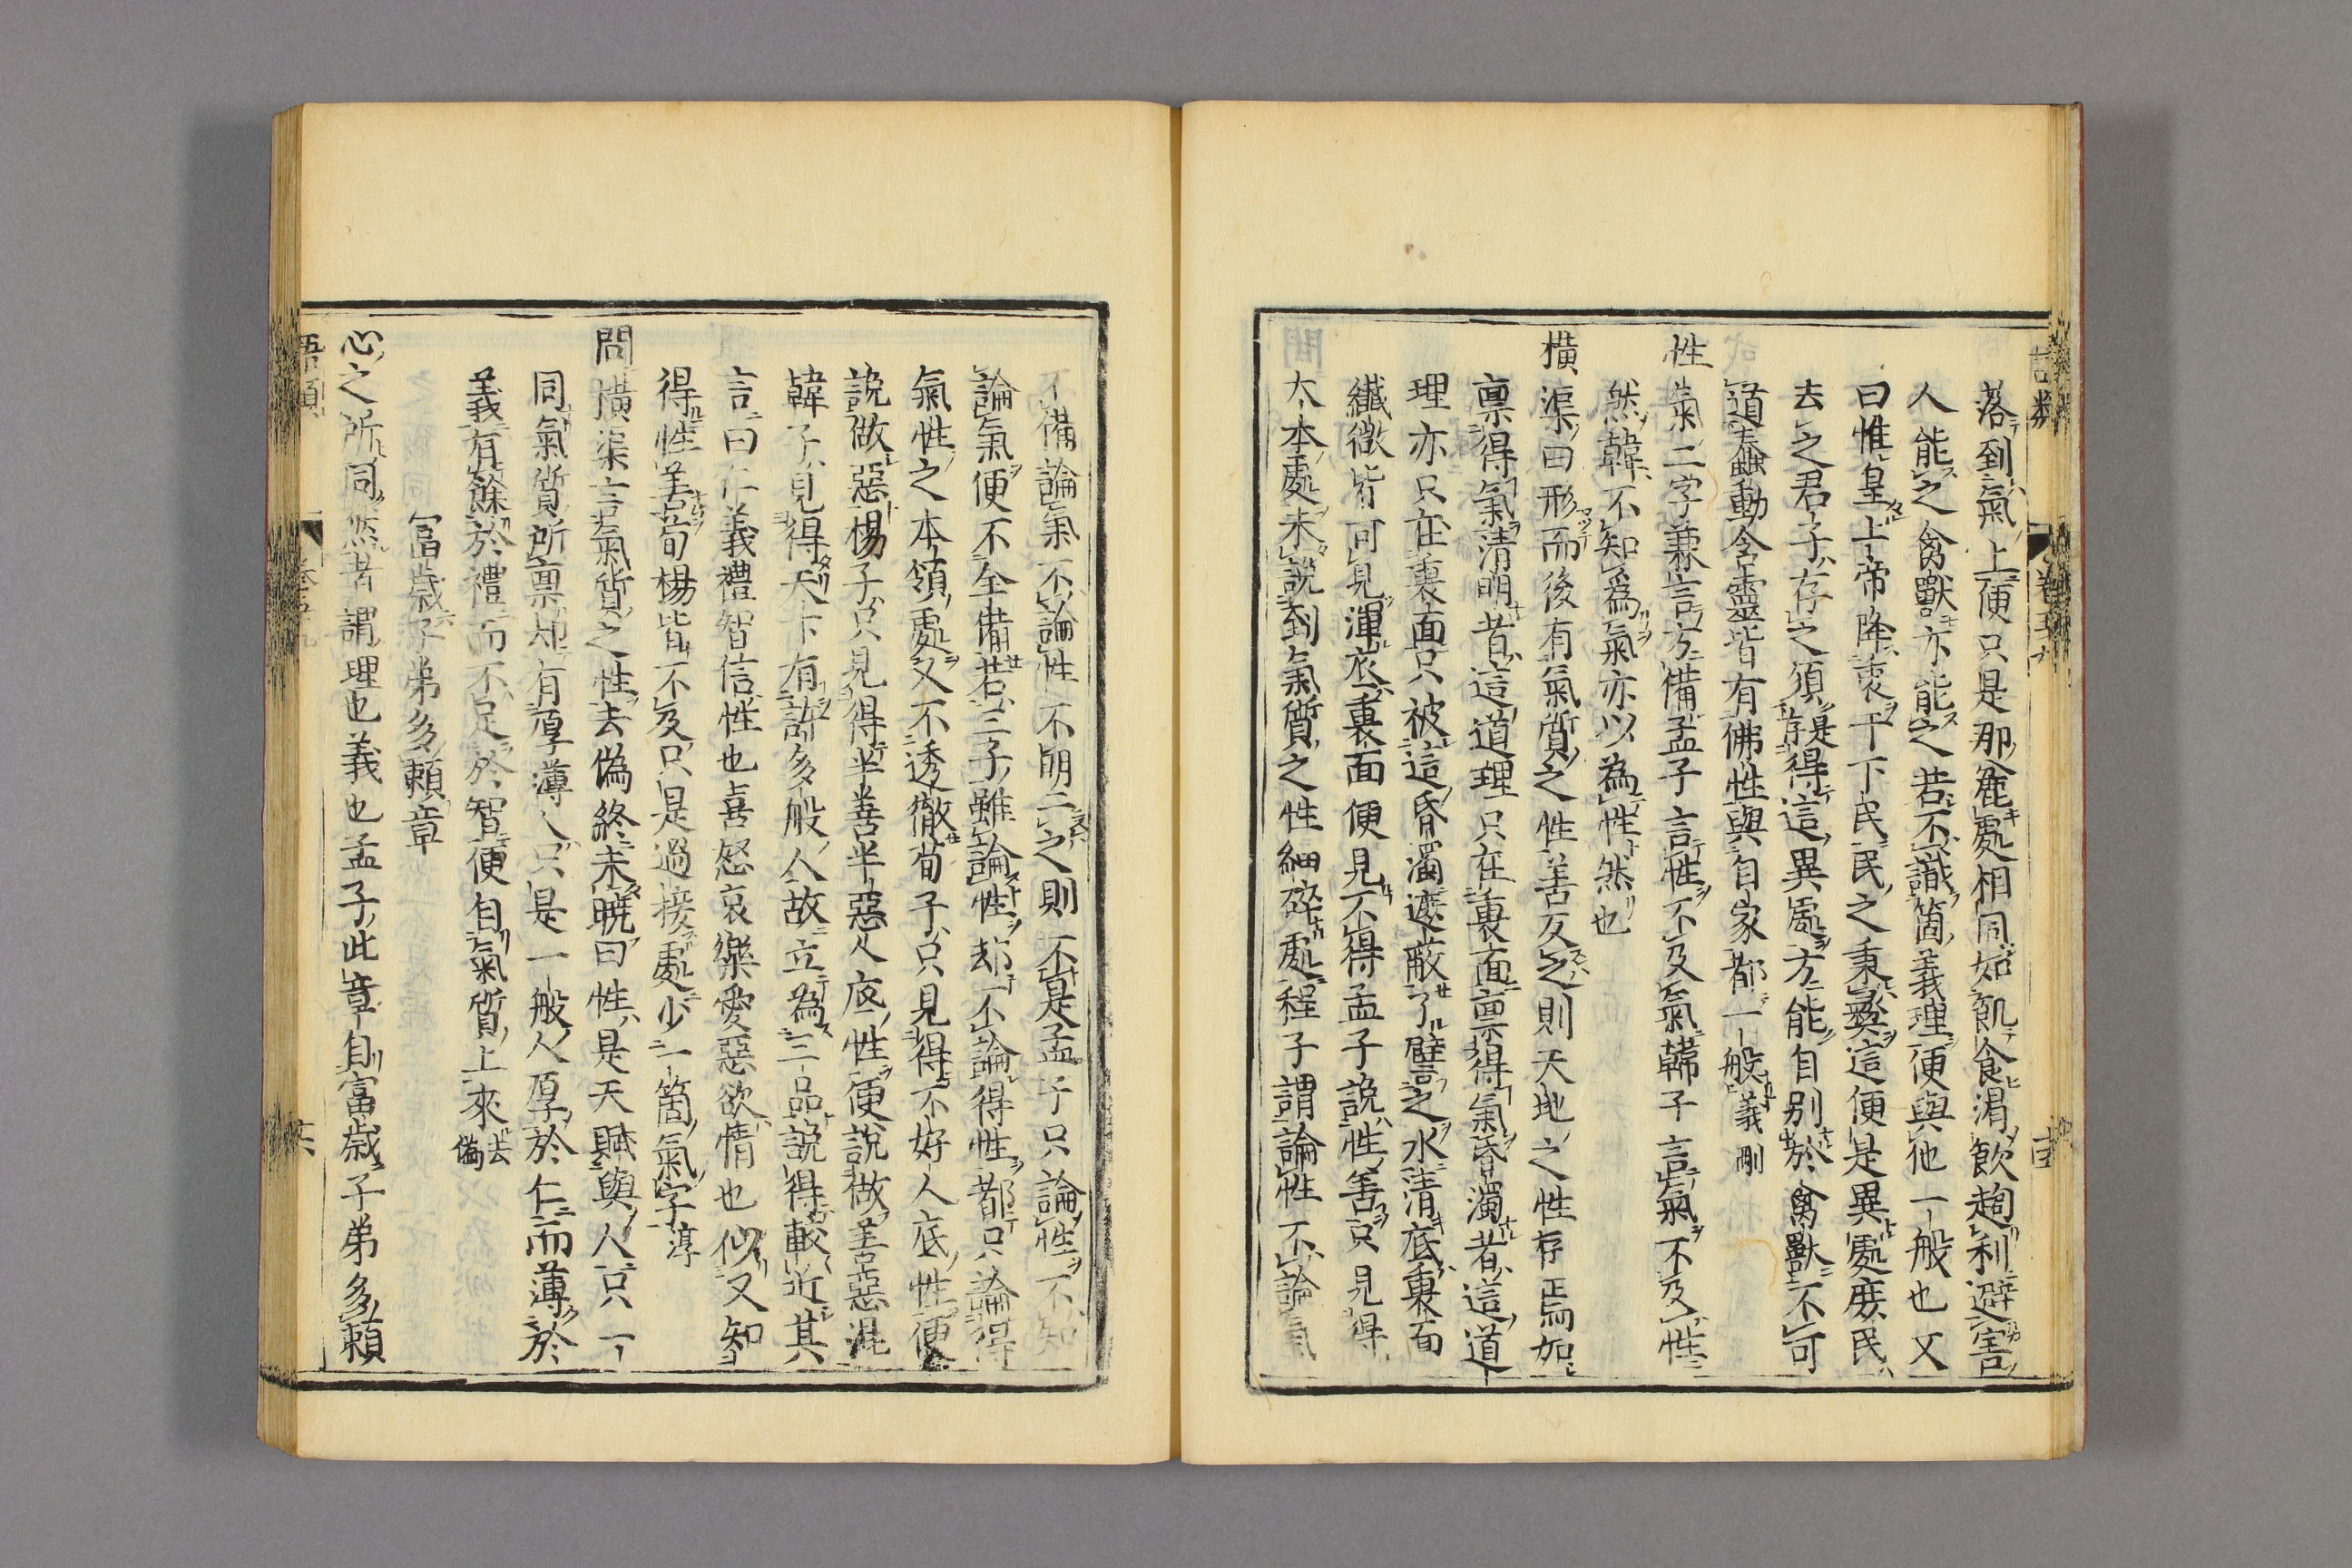 落到氣上便只是那麄處相同如飢食渴飲趨利避害
人能之禽獸亦能之若不識箇義理便與他一般也又
曰惟皇上帝降衷于下民民之秉彜這便是異處庶民
去之君子存之須是存得這異處方能自别於禽獸不可
道蠢動含靈皆有佛性與自家都一般義剛
性氣二字兼言方備孟子言性不及氣韓子言氣不及性
然韓不知爲氣亦以為性然也
横渠曰形而後有氣質之性善反之則天地之性存焉如
禀得氣清明者這道理只在裏面禀得氣昏濁者這道
理亦只在裏面只被這昏濁遮蔽了譬之水清底裏面
纖微皆可見渾底裏面便見不得孟子說性善只見得
大本處未說到氣質之性細碎處程子謂論性不論氣
不備論氣不論性不明二之則不是孟子只論性不知
論氣便不全備若三子雖論性却不論得性都只論得
氣性之本領處又不透徹荀子只見得不好人底性便
說做惡楊子只見得半善半惡人底性便說做善惡混
韓子見得天下有許多般人故立為三品說得較近其
言曰仁義禮智信性也喜怒哀樂愛惡欲情也似又知
得性善荀楊皆不及只是過接處少一箇氣字淳
問橫渠言氣質之性去偽終未曉曰性是天賦與人只一
同氣質所禀却有厚薄人只是一般人厚於仁而薄於
義有餘於禮而不足於智便自氣質上來去偽
富歳子弟多賴章
心之所同然者謂理也義也孟子此章自富歳子弟多賴
語類